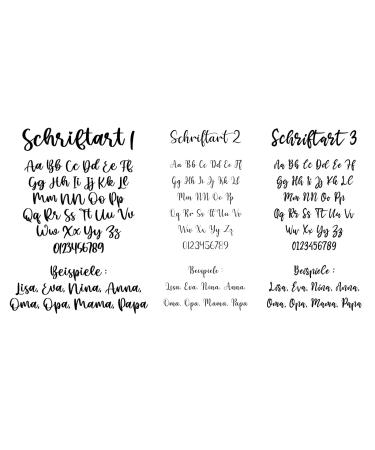 Schriftart 1
Aa Bb Cc Dd Ee Ff
Gg Hh Ii Jj Kk Ll
Mm NN Oo Pp
Qq Rr Ss Tt Uu Vv
Ww Xx Yy Zz
0123456789
Beispiele :
Lisa, Eva, Nina, Anna,
Oma, Opa, Mama, Papa
Schriftart 2
Aa Bb Cc Dd Ee Ff
Gg Hh Ii Jj Kk Ll
Mm Nn Oo Pp
Qq Rr Ss Tt Uu Vv
Ww Xx Yy Zz
0123456789
Beispiele :
Lisa, Eva, Nina, Anna
Oma, Opa, Mama, Papa
Schriftart 3
Aa Bb Cc Dd Ee Ff
Gg Hh Ii Jj Kk Ll
Mm Nn Oo Pp
Qq Rr Ss Tt Uu Vv
Ww Xx Yy Zz
0123456789
Beispiele :
Lisa, Eva, Nina, Anna,
Oma, Opa, Mama, Papa